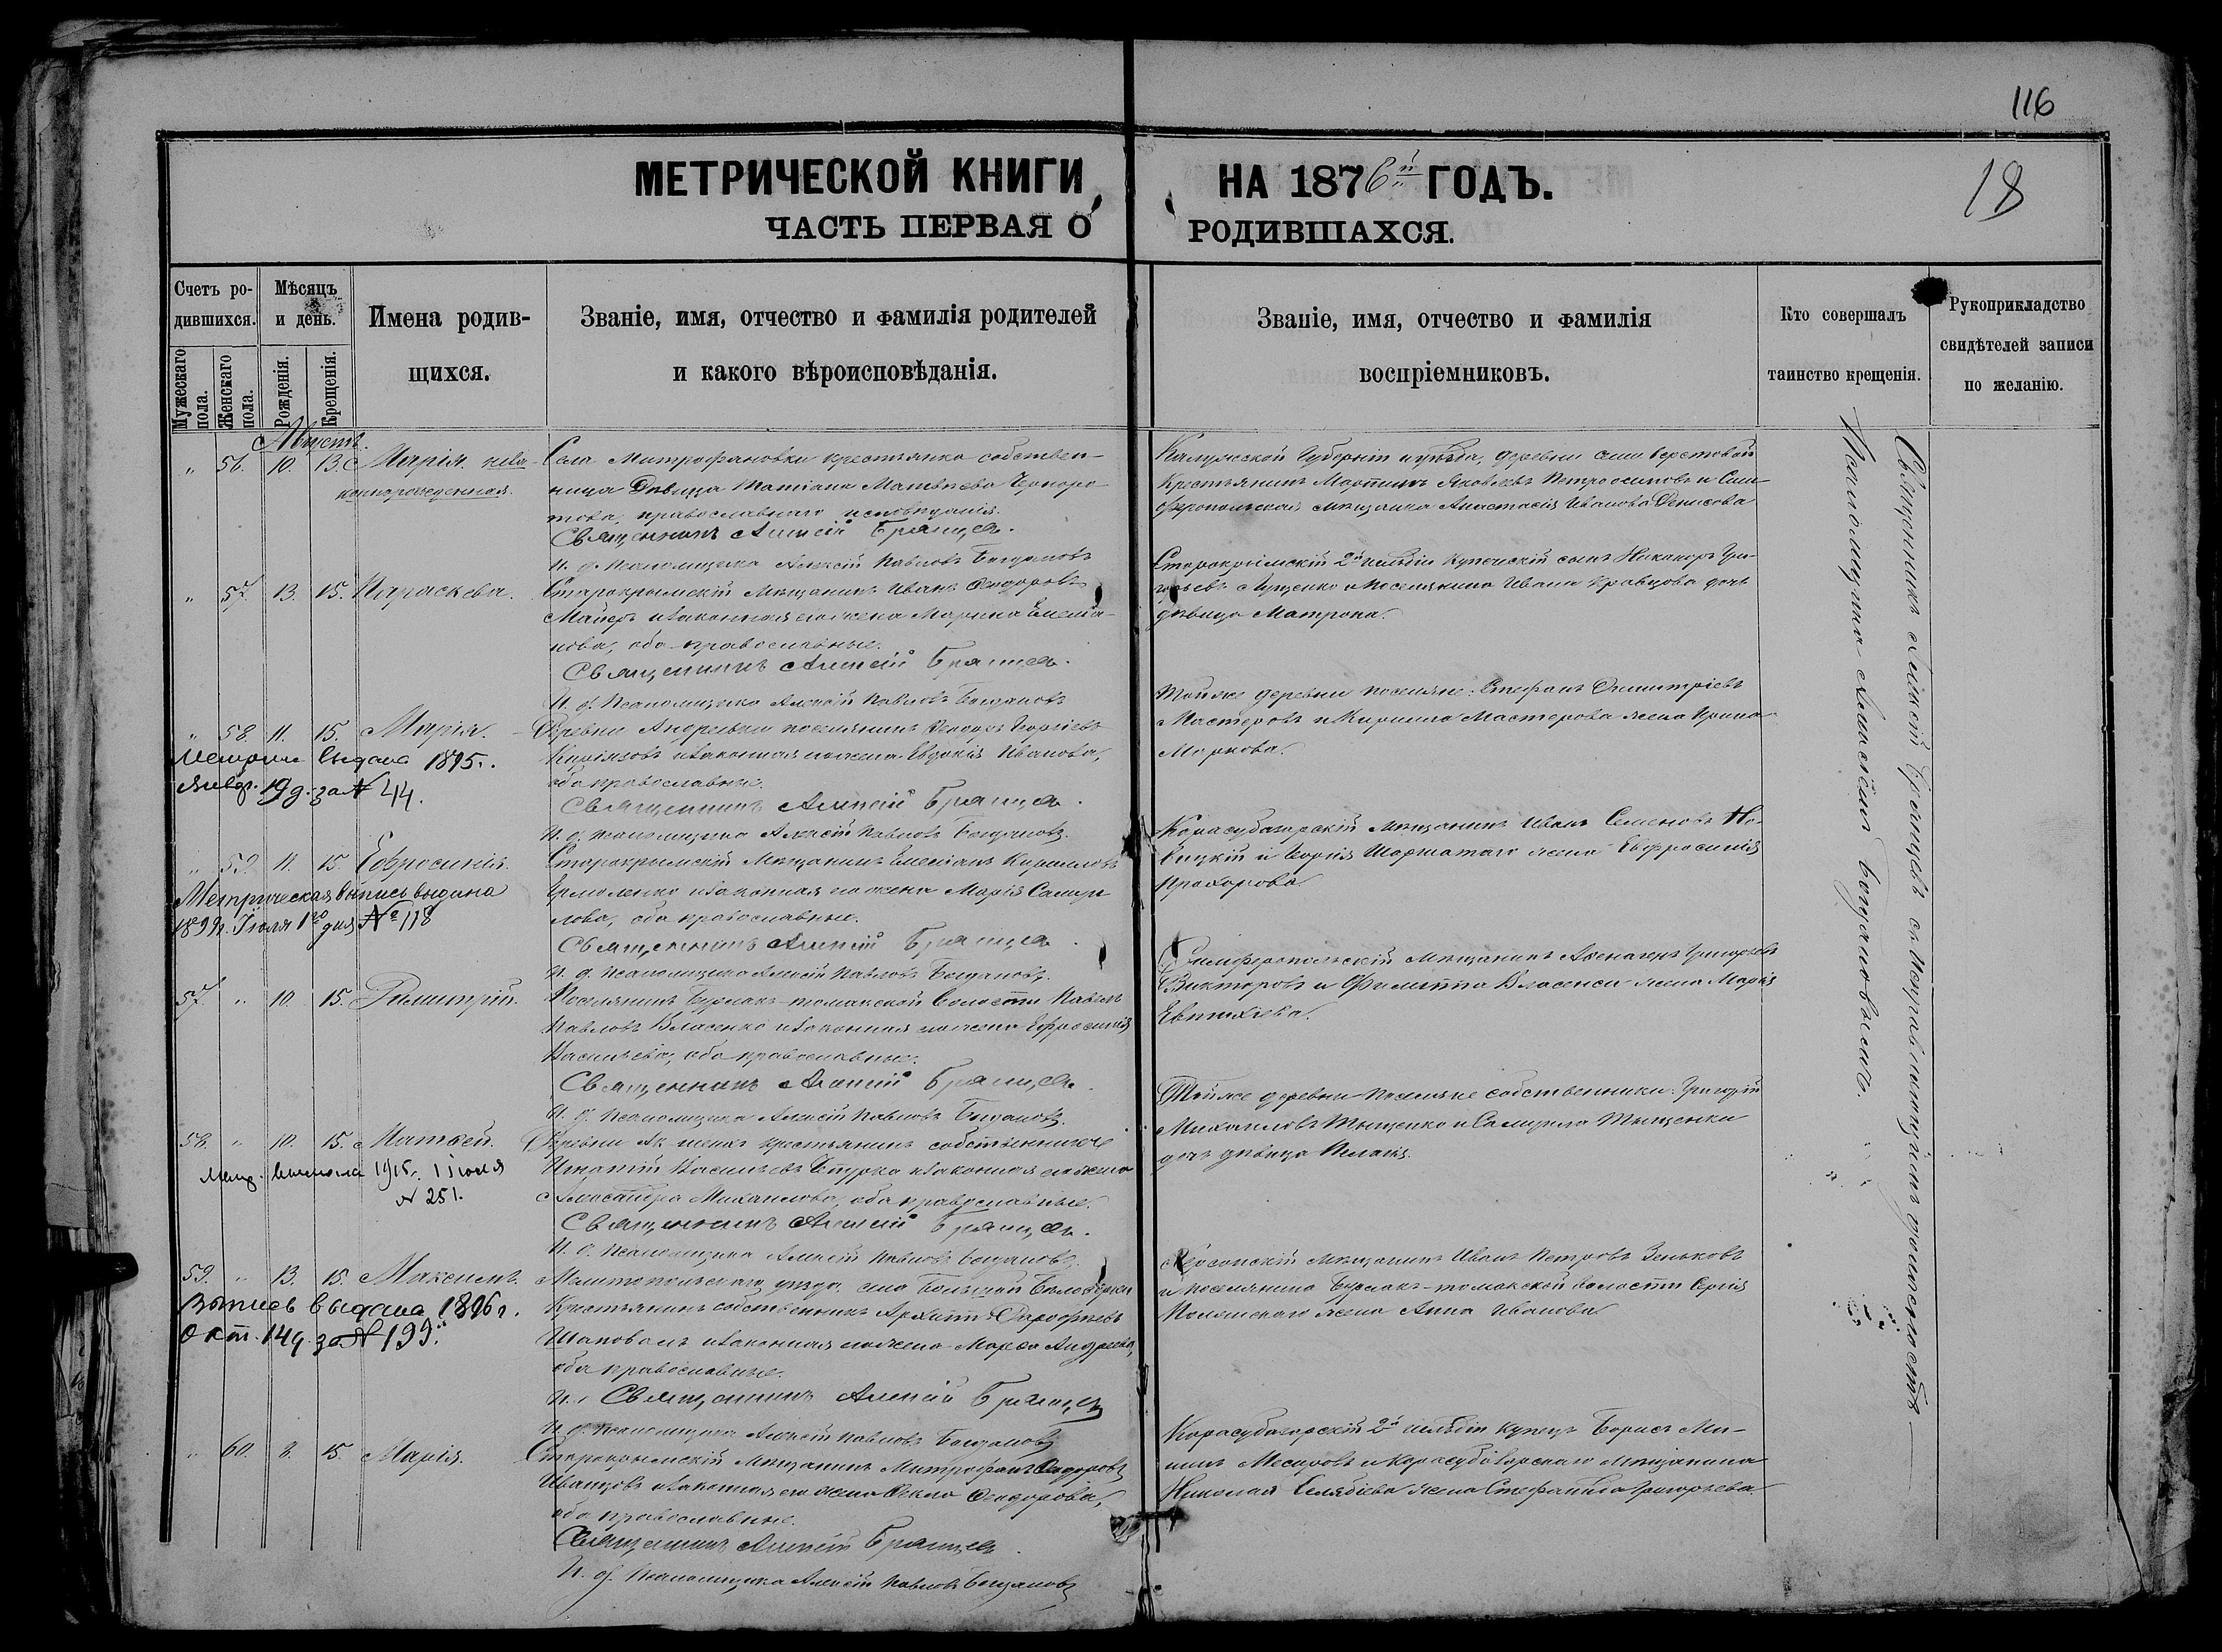 116
МЕТРИЧЕСКОЙ КНИГИ НА 1876й ГОДЪ.
18
ЧАСТЬ ПЕРВАЯ О РОДИВШАХСЯ.
Счетъ родившихся.
Мужескаго пола.
Женскаго пола.
Мѣсяцъ и день.
Рожденія.
Крещенія.
Имена родившихся.
Званіе, имя, отчество и фамилія родителей
и какого вѣроисповѣданія.
Званіе, имя, отчество и фамилія
воспріемниковъ.
Кто совершалъ
таинство крещенія.
Рукоприкладство
свидѣтелей записи
по желанію.
Августъ.
„ 56. 10. 13. Марія. неза-
коннорожденная.
Села Митрофановки крестьянка собствен-
ница Дѣвица Татіана Матвѣева
православнаго исповѣданія.
Священникъ Алексій Брянцевъ.
И. д. Псаломщика Алексій Павловъ Богдановъ
Калужской Губерніи и уѣзда, деревни
Крестьянинъ Мартинъ Яковлевъ и Сим-
феропольская мѣщанка Анастасія Иванова Денисова
„ 57. 13. 15. Параскева.
Старокрымскій Мѣщанинъ Иванъ Ѳеодоровъ
Майеръ и законная его жена Марина Емелья-
нова, оба православные.
Священникъ Алексій Брянцевъ.
И. д. Псаломщика Алексій Павловъ Богдановъ
Старокрымскій 2й гильдіи Купеческій сынъ Никаноръ Гри-
горьевъ Луценко и Поселянина Ивана Кравцова дочь
дѣвица Матрона.
„ 58. 11. 15. Марія.
Метрика выдана 1895 г.
Январ. 19 д. за № 44.
Деревни Андреевки поселянинъ
и законная его жена Евдокія Иванова,
оба православные.
Священникъ Алексій Брянцевъ.
И. д. Псаломщика Алексій Павловъ Богдановъ.
Той же деревни поселяне: Стефанъ Димитріевъ
Мастеровъ и Кирилла Мастерова жена Ирина
Маркова.
„ 59. 11. 15. Евфросинія.
Метрическая выпись выдана
1899 г. Іюля 1го дня № 118
Старокрымскій Мѣщанинъ Емеліанъ Кирилловъ
Ермоленко и законная его жена Марія Самуи-
лова, оба православные.
Священникъ Алексій Брянцевъ.
И. д. Псаломщика Алексій Павловъ Богдановъ.
Карасубазарскій мѣщанинъ Иванъ Семеновъ Но-
вицкій и жена Евфросинія
Прохорова.
57. „ 10. 15. Димитрій.
Поселянинъ Бурлакъ-томакской Волости Павелъ
Павловъ Власенко и законная его жена Ефросинія
Васильева, оба православные.
Священникъ Алексій Брянцевъ.
И. д. Псаломщика Алексій Павловъ Богдановъ.
Симферопольскій Мѣщанинъ Григорьевъ
Викторовъ и Филиппа Власенки жена Марія
Евтихіева.
58. „ 10. 15. Матвей.
Метр. выписка 1915 г. 1 іюля
№ 251.
Деревни крестьянинъ собственникъ
Игнатій Васильевъ и законная его жена
Александра Михаилова, оба православные.
Священникъ Алексій Брянцевъ.
И. д. Псаломщика Алексій Павловъ Богдановъ.
Той же деревни поселяне собственники: Григорій
Михаиловъ Тыщенко и Самуила Тыщенки
дочь дѣвица Пелагія.
59. „ 13. 15. Максимъ.
Выпись выдана 1896 г.
Окт. 14 д. за № 199.
Мелитопольскаго уѣзда села Большой Бѣлозерки
Крестьянинъ собственникъ Архиппъ Дорофеевъ
Шаповалъ и законная его жена Марѳа Андреева,
оба православные.
Священникъ Алексій Брянцевъ
И. д. Псаломщика Алексій Павловъ Богдановъ
Херсонскій мѣщанинъ Иванъ Петровъ Зеньковъ
и поселянина Бурлакъ-томакской волости Сергія
жена Анна Иванова.
„ 60. 8. 15. Марія.
Старокрымскій Мѣщанинъ Митрофанъ Ѳеодоровъ
Иванцовъ и законная его жена Ѳекла Ѳеодорова,
оба православные.
Священникъ Алексій Брянцевъ.
И. д. Псаломщика Алексій Павловъ Богдановъ
Карасубазарскій 2й гильдіи купецъ Борисъ Ми-
нинъ и Карасубазарскаго мѣщанина
Николая жена Стефанида Григорьева.
Священникъ Алексій Брянцевъ съ исправляющимъ должность
Псаломщика Алексіемъ Богдановымъ.